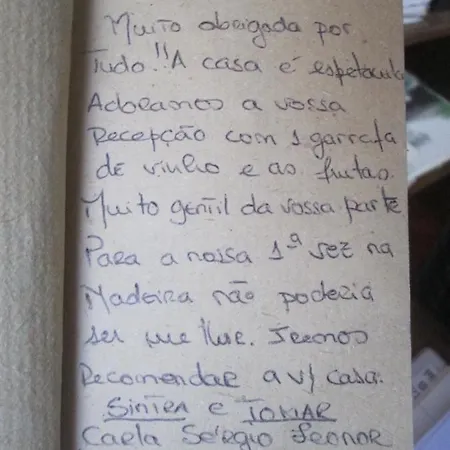 Muito obrigada por
tudo!! A casa é espetacula
Adoramos a vossa
Recepção com 1 garrafa
de vinho e as frutas.
Muito gentil da vossa parte
Para a nossa 1ª vez na
Madeira não poderia
ser melhor. Iremos
Recomendar a v/ casa.
SINTRA e TOMAR
Carla Sérgio Leonor